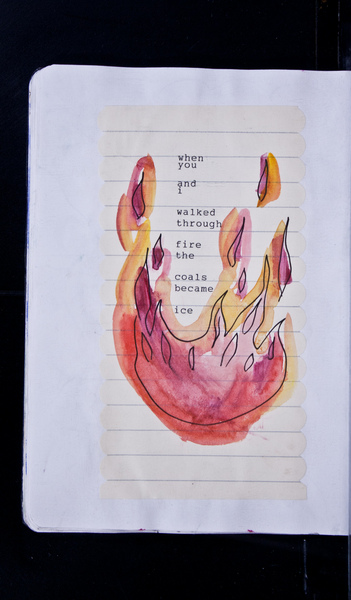 when
you
and
i
walked
through
fire
the
coals
became
ice